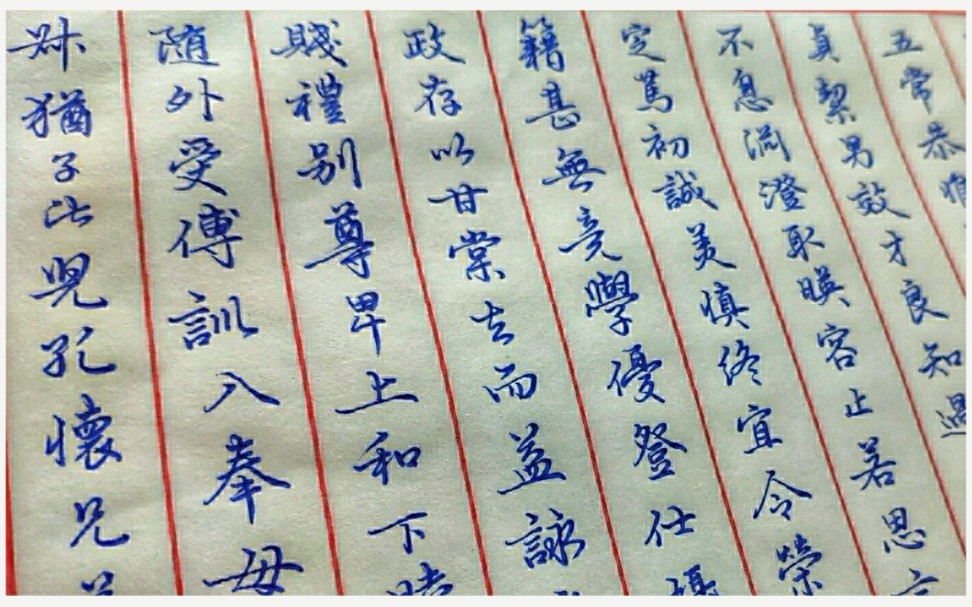 五常恭惟
貞絜男效才良知過
不息淵澄取暎容止若思言
定篤初誠美慎終宜令榮
籍甚無竟學優登仕攝
政存以甘棠去而益詠
賤禮别尊卑上和下睦
随外受傅訓入奉母
叔猶子比兒孔懷兄弟